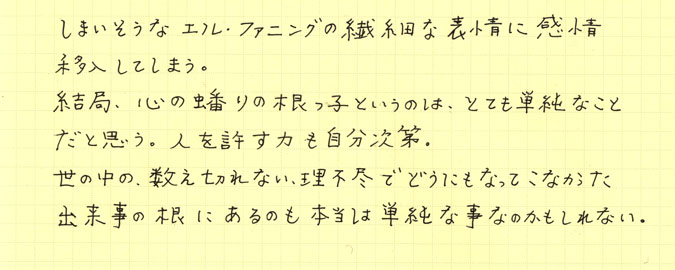 しまいそうな エル・ファニングの繊細な表情に感情
移入してしまう。
結局、心の蟠りの根っ子というのは、とても単純なこと
だと思う。人を許す力も自分次第。
世の中の、数え切れない、理不尽でどうにもなってこなかった
出来事の根にあるのも本当は単純な事なのかもしれない。